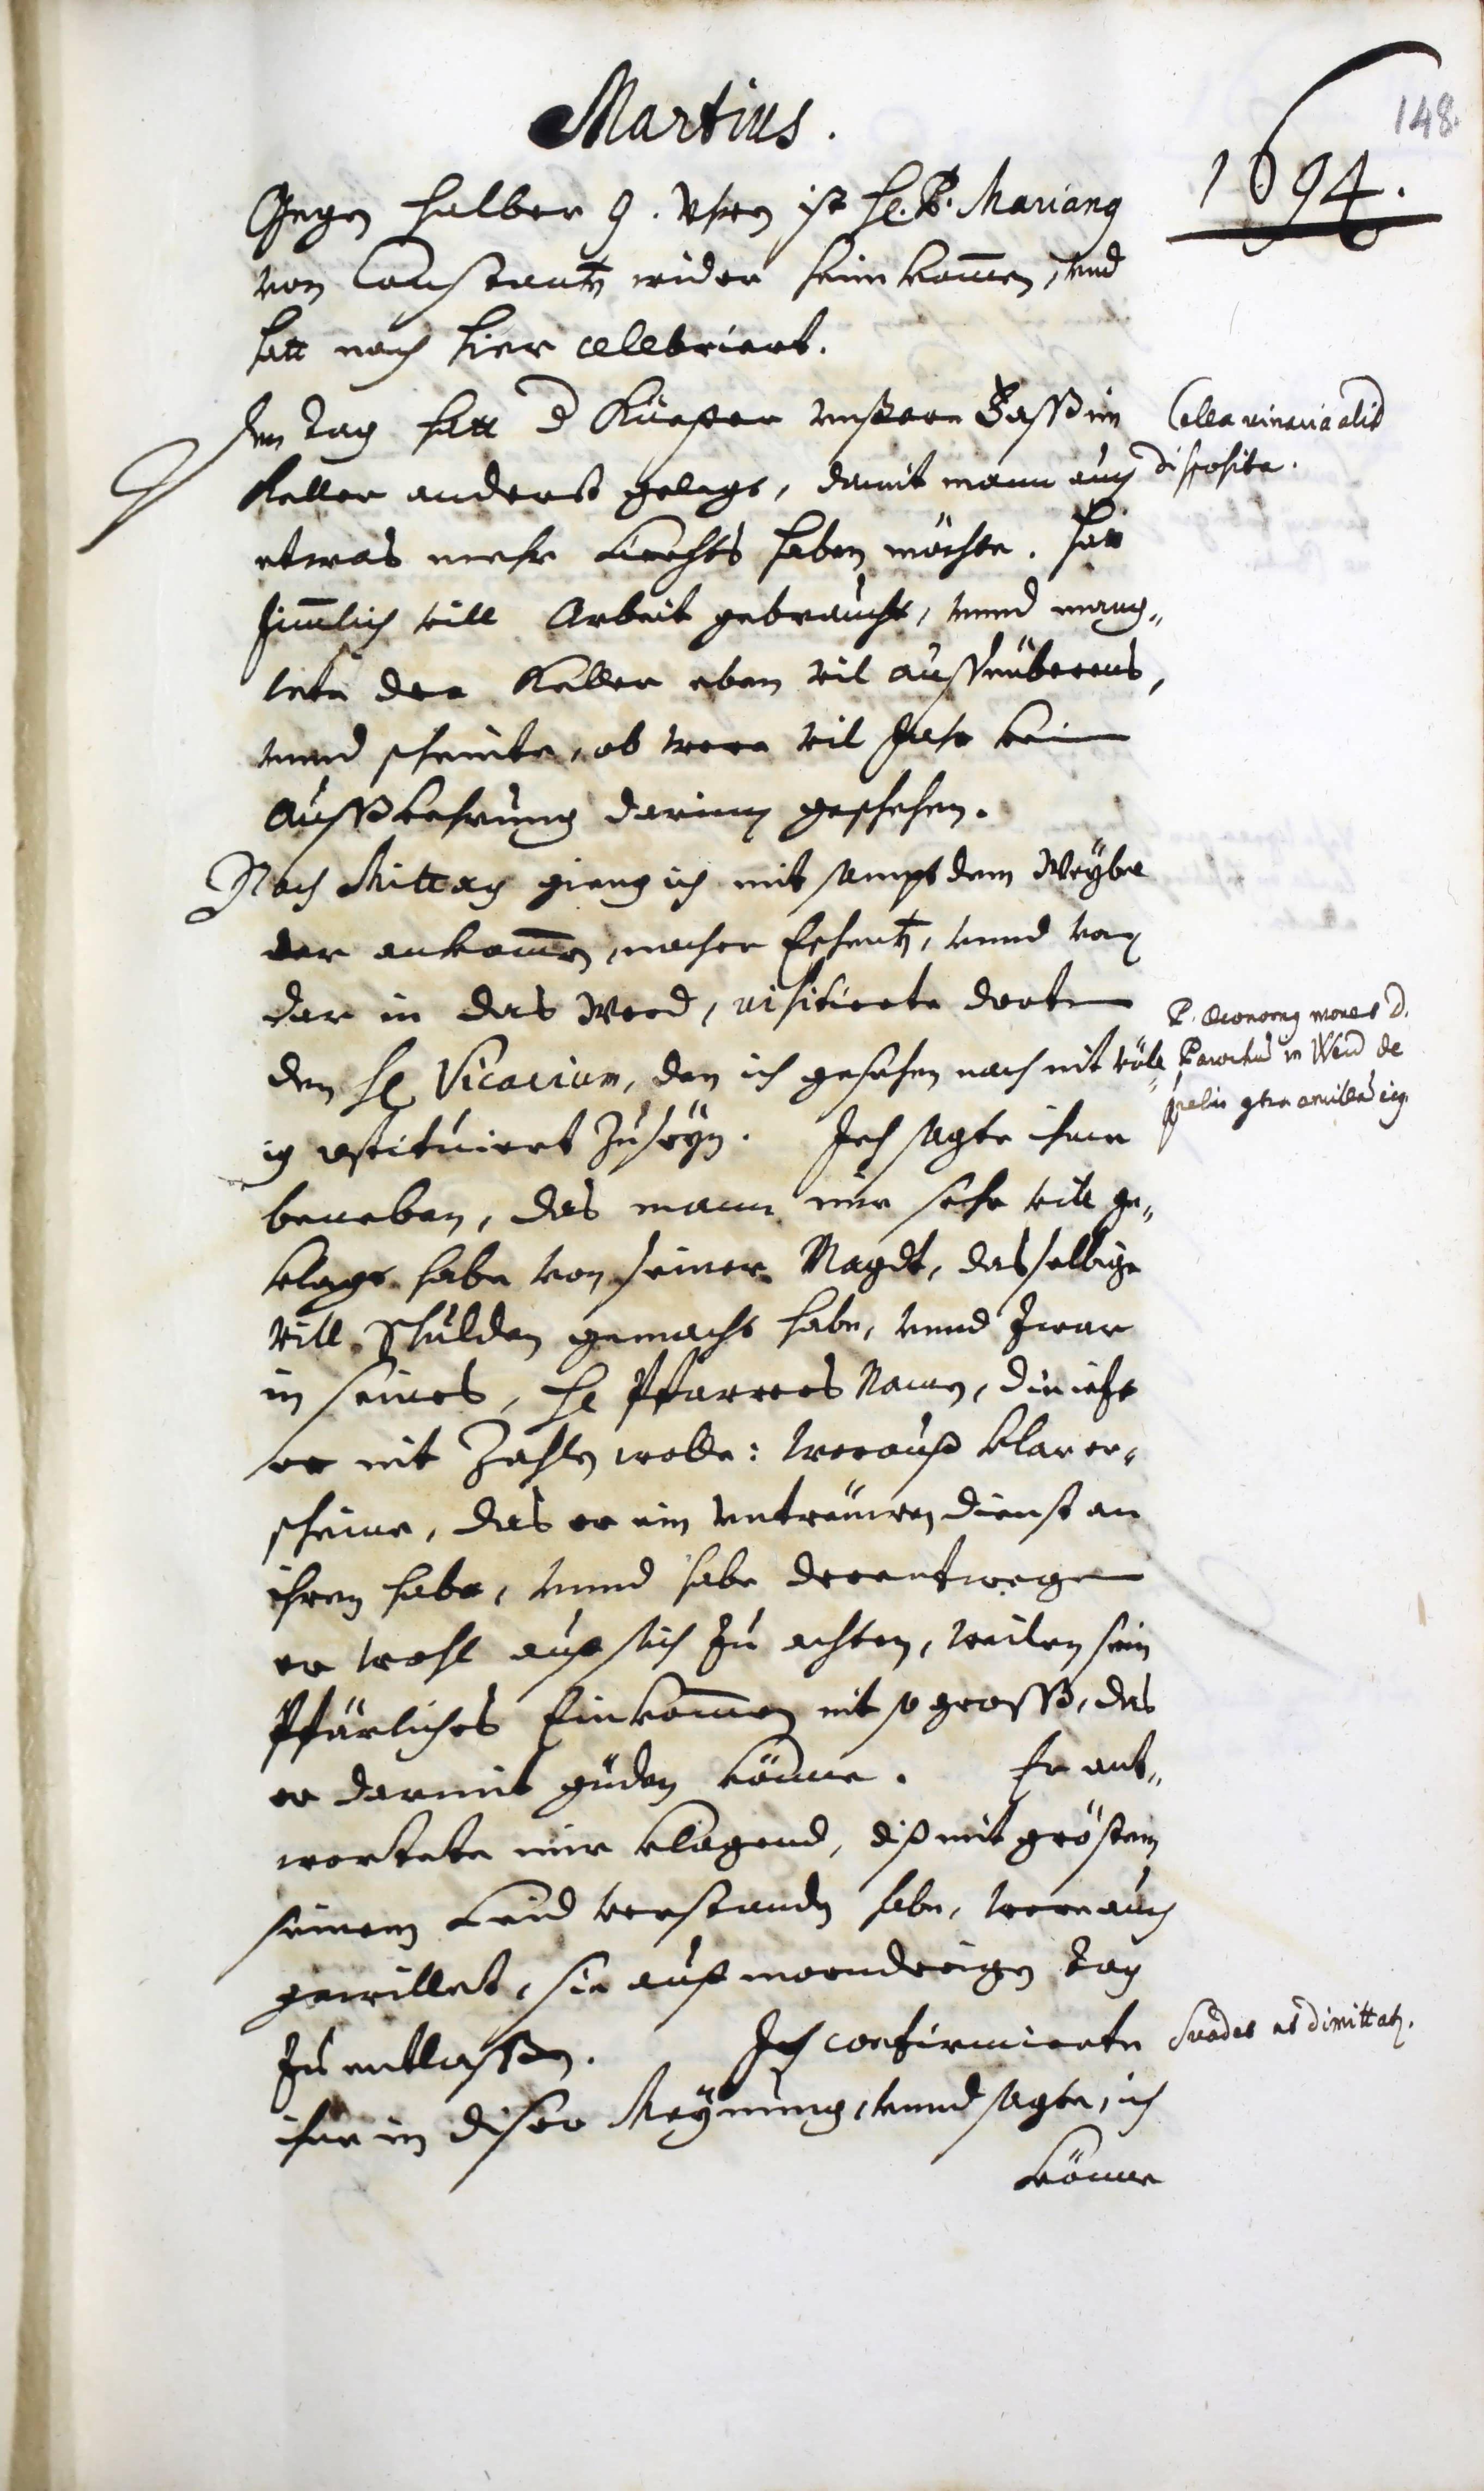 148.
Martius.
1694.
Gegen halber 9. Vhren ist H. P. Mariang
von Constantz wider heim kom̄en, vnd
hatt noch hier celebriert.
Den Tag hatt d Küeffer vnßere Faß im
Keller anderst gelegt, damit mann auch
etwas mehr Liechts haben möchte. hatt
zimlich vill Arbeit gebraucht, vnnd mang„
lete der Keller eben vil ausseüberens,
vnnd scheinte, ob were vil Jahr kein
Außkehrung darinn geschehen.
Cella vinaria alit
disposita.
Nach Mittag gieng ich mit sampt dem Weÿbel
der ankom̄en, nacher Eschentz, vnnd von
dar in das Werd, visitierte dorten
den H. Vicarium, den ich gesehen noch nit völl„
ig restituiert zu seÿn. Ich sagte ihme
beneben, das mann mir sehr vill ge„
klagt habe von seiner Magdt, das selbige
vill schulden gemacht habe, vnnd zwar
in seines, H. Pfarrers Namen, die iehr
er nit zahlen wolle: Woraus klar er„
scheine, das er ein vntreüwen dienst an
ihren habe, vnnd habe derentwegen
er wohl auf sich zu achten, weilen sein
Pfärliches Einkom̄en nit so groß, das
er darmit güden könne. Er ant„
wortete mir klagend, diß mit gröstem
seinem Leid verstanden habe, were auch
gewillet, sie auf morndrigen Tag
zu entlassen. Ich confirmierte
ihne in diser Meÿnung, vnnd sagte, ich
könne
P. Oeconomg monet D.
Parochum in Werd de
contra ancillam
Suadet ut dimittatr.